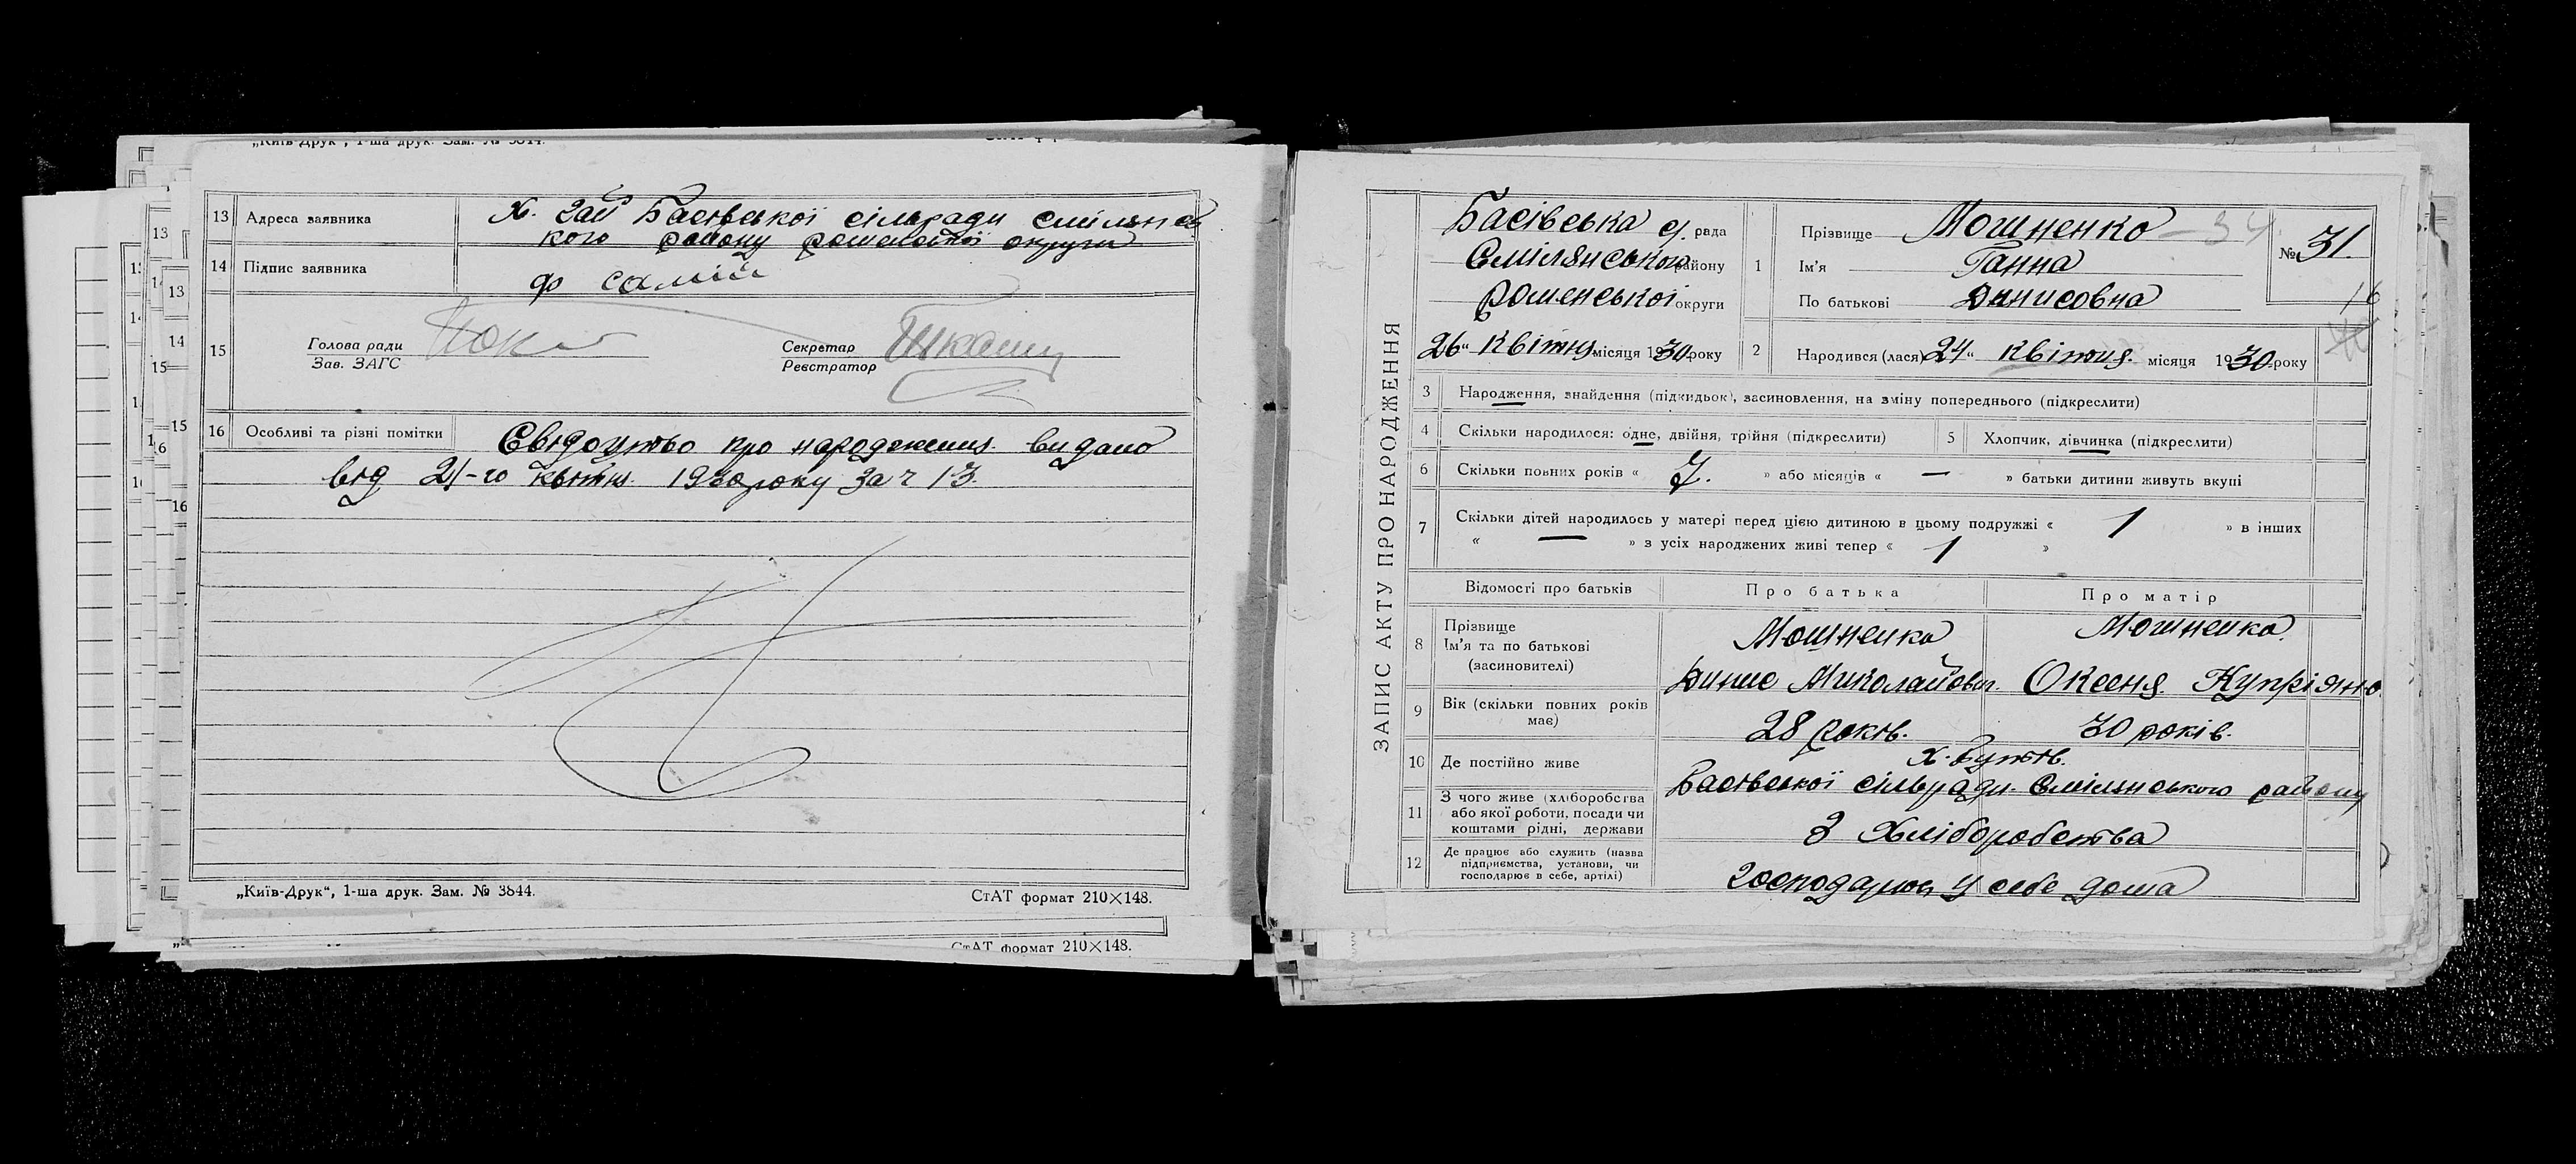 „Київ-Друк“, 1-ша друк. Зам. № 3844.
13 Адреса заявника
х. Гай Басівської сільради Смілянсь
кого району роменської округи
14 Підпис заявника
15
Голова ради
Зав. ЗАГС
Секретар
Реєстратор
16 Особливі та різні помітки
Свідоцтво про народження видано
від 21-го квітня 1930 року за ч 13.
„Київ-Друк“, 1-ша друк. Зам. № 3844.
СтАТ формат 210×148.
СтАТ формат 210×148.
ЗАПИС АКТУ ПРО НАРОДЖЕННЯ
Басівська с. рада
Смілянського району
Роменської округи
26 “ Квітня місяця 1930 року
1 Прізвище Мошненко 34
Ім’я Ганна
По батькові Динисовна
№ 31.
16
2 Народився (лася) 24 “ Квітня місяця 1930 року
3 Народження, знайдення (підкидьок), засиновлення, на зміну попереднього (підкреслити)
4 Скільки народилося: одне, двійня, трійня (підкреслити)
5 Хлопчик, дівчинка (підкреслити)
6 Скільки повних років « 7. » або місяців « — » батьки дитини живуть вкупі
7 Скільки дітей народилось у матері перед цією дитиною в цьому подружжі « 1 » в інших
« — » з усіх народжених живі тепер « 1 »
Відомості про батьків
Про батька
Про матір
8 Прізвище
Ім’я та по батькові
(засиновителі)
Мошненко
Динис Миколайович
Мошненко
Оксеня Купріяно
9 Вік (скільки повних років має)
28 років.
30 років.
10 Де постійно живе
х.
Басівської сільради Смілянського району
11 З чого живе (хліборобства
або якої роботи, посади чи
коштами рідні, держави
З Хліборобства
12 Де працює або служить (назва
підприємства, установи, чи
господарює в себе, артілі)
господарює у себе дома